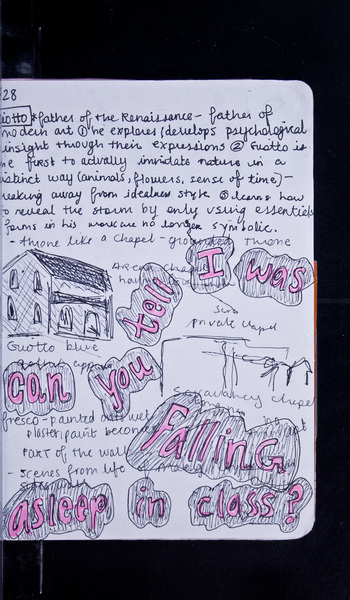 28
iotto *father of the Renaissance- father of
modern art ① he explores/develops psychological
insight though their expressions ② Giotto is
he first to actually imitate nature in a
istinct way (animals, flowers, sense of time)-
eaking away from style ③ learns how
to reveal the storm by only using essential
forms in his work are no longer symbolic.
- throne like a chapel - grounded throne
Arena Chapel
tell I was
private chapel
Giotto blue
can you
chapel
fresco - painted wet
plaster/paint become
falling
part of the wall
- scenes from life
asleep in class?